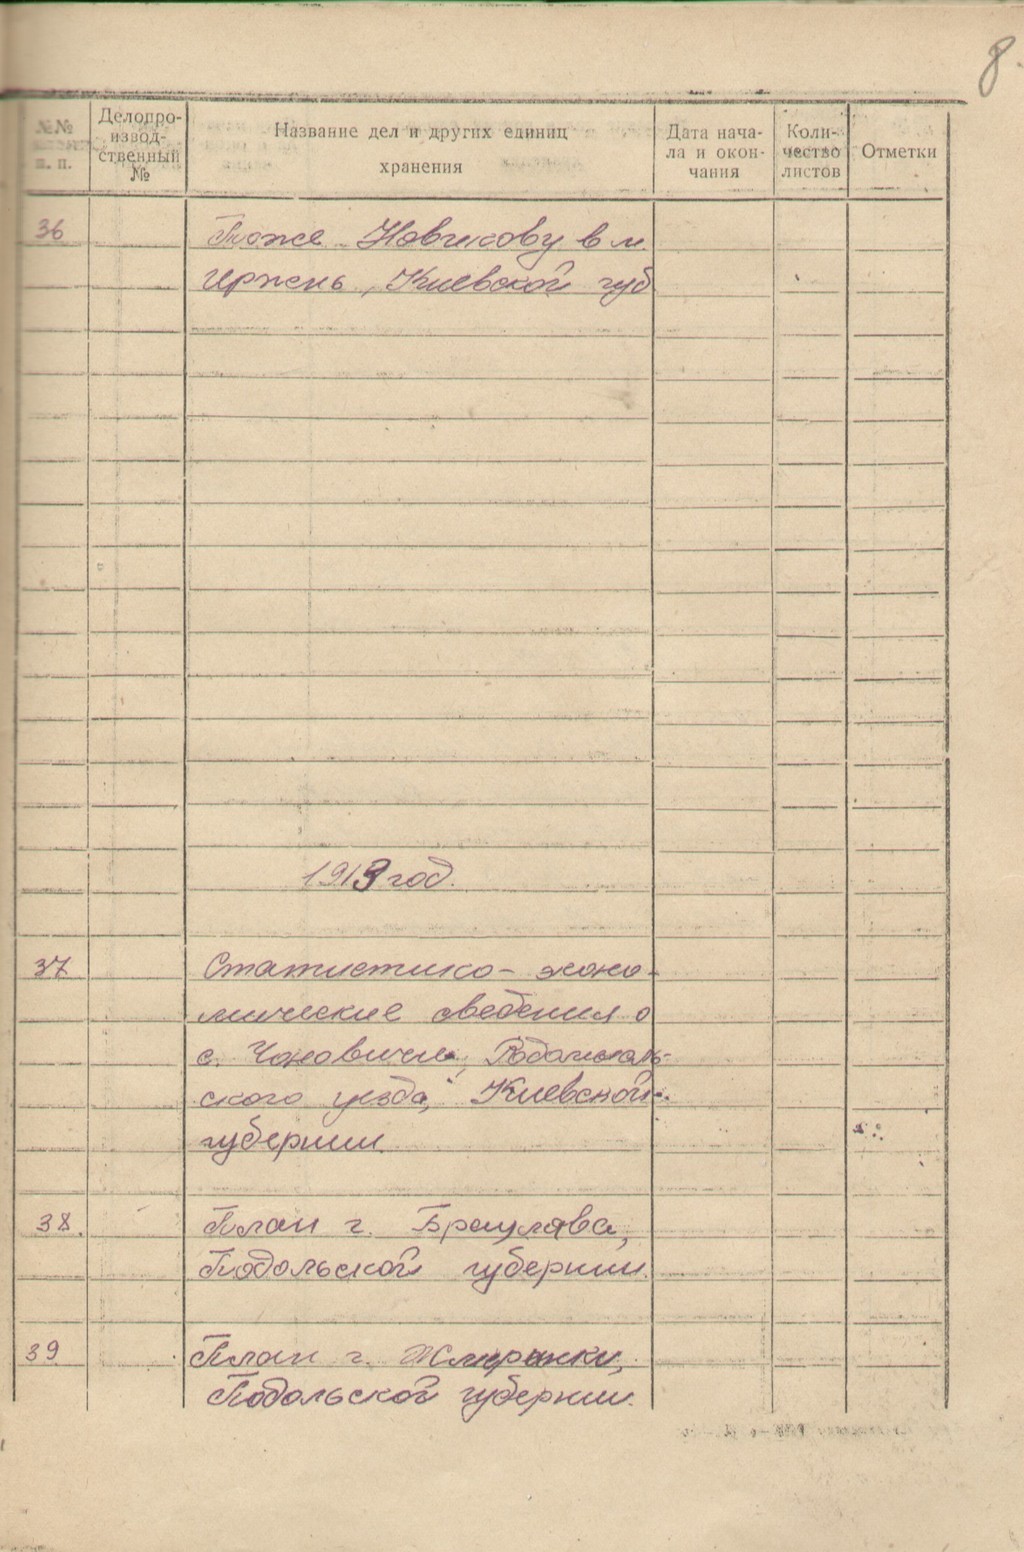 8.
№№ п. п.
Делопро-
извод-
ственный
№
Название дел и других единиц
хранения
Дата нача-
ла и окон-
чания
Коли-
чество
листов
Отметки
36
Тоже Новикову в м.
Ирпень, Киевской губ
1913 год.
37
Статистико-эконо-
мические сведения о
с. Чоповичи, Радомысль-
ского уезда, Киевской
губернии.
38.
План г. Брацлава,
Подольской губернии.
39
План г. Жмеринки,
Подольской губернии.